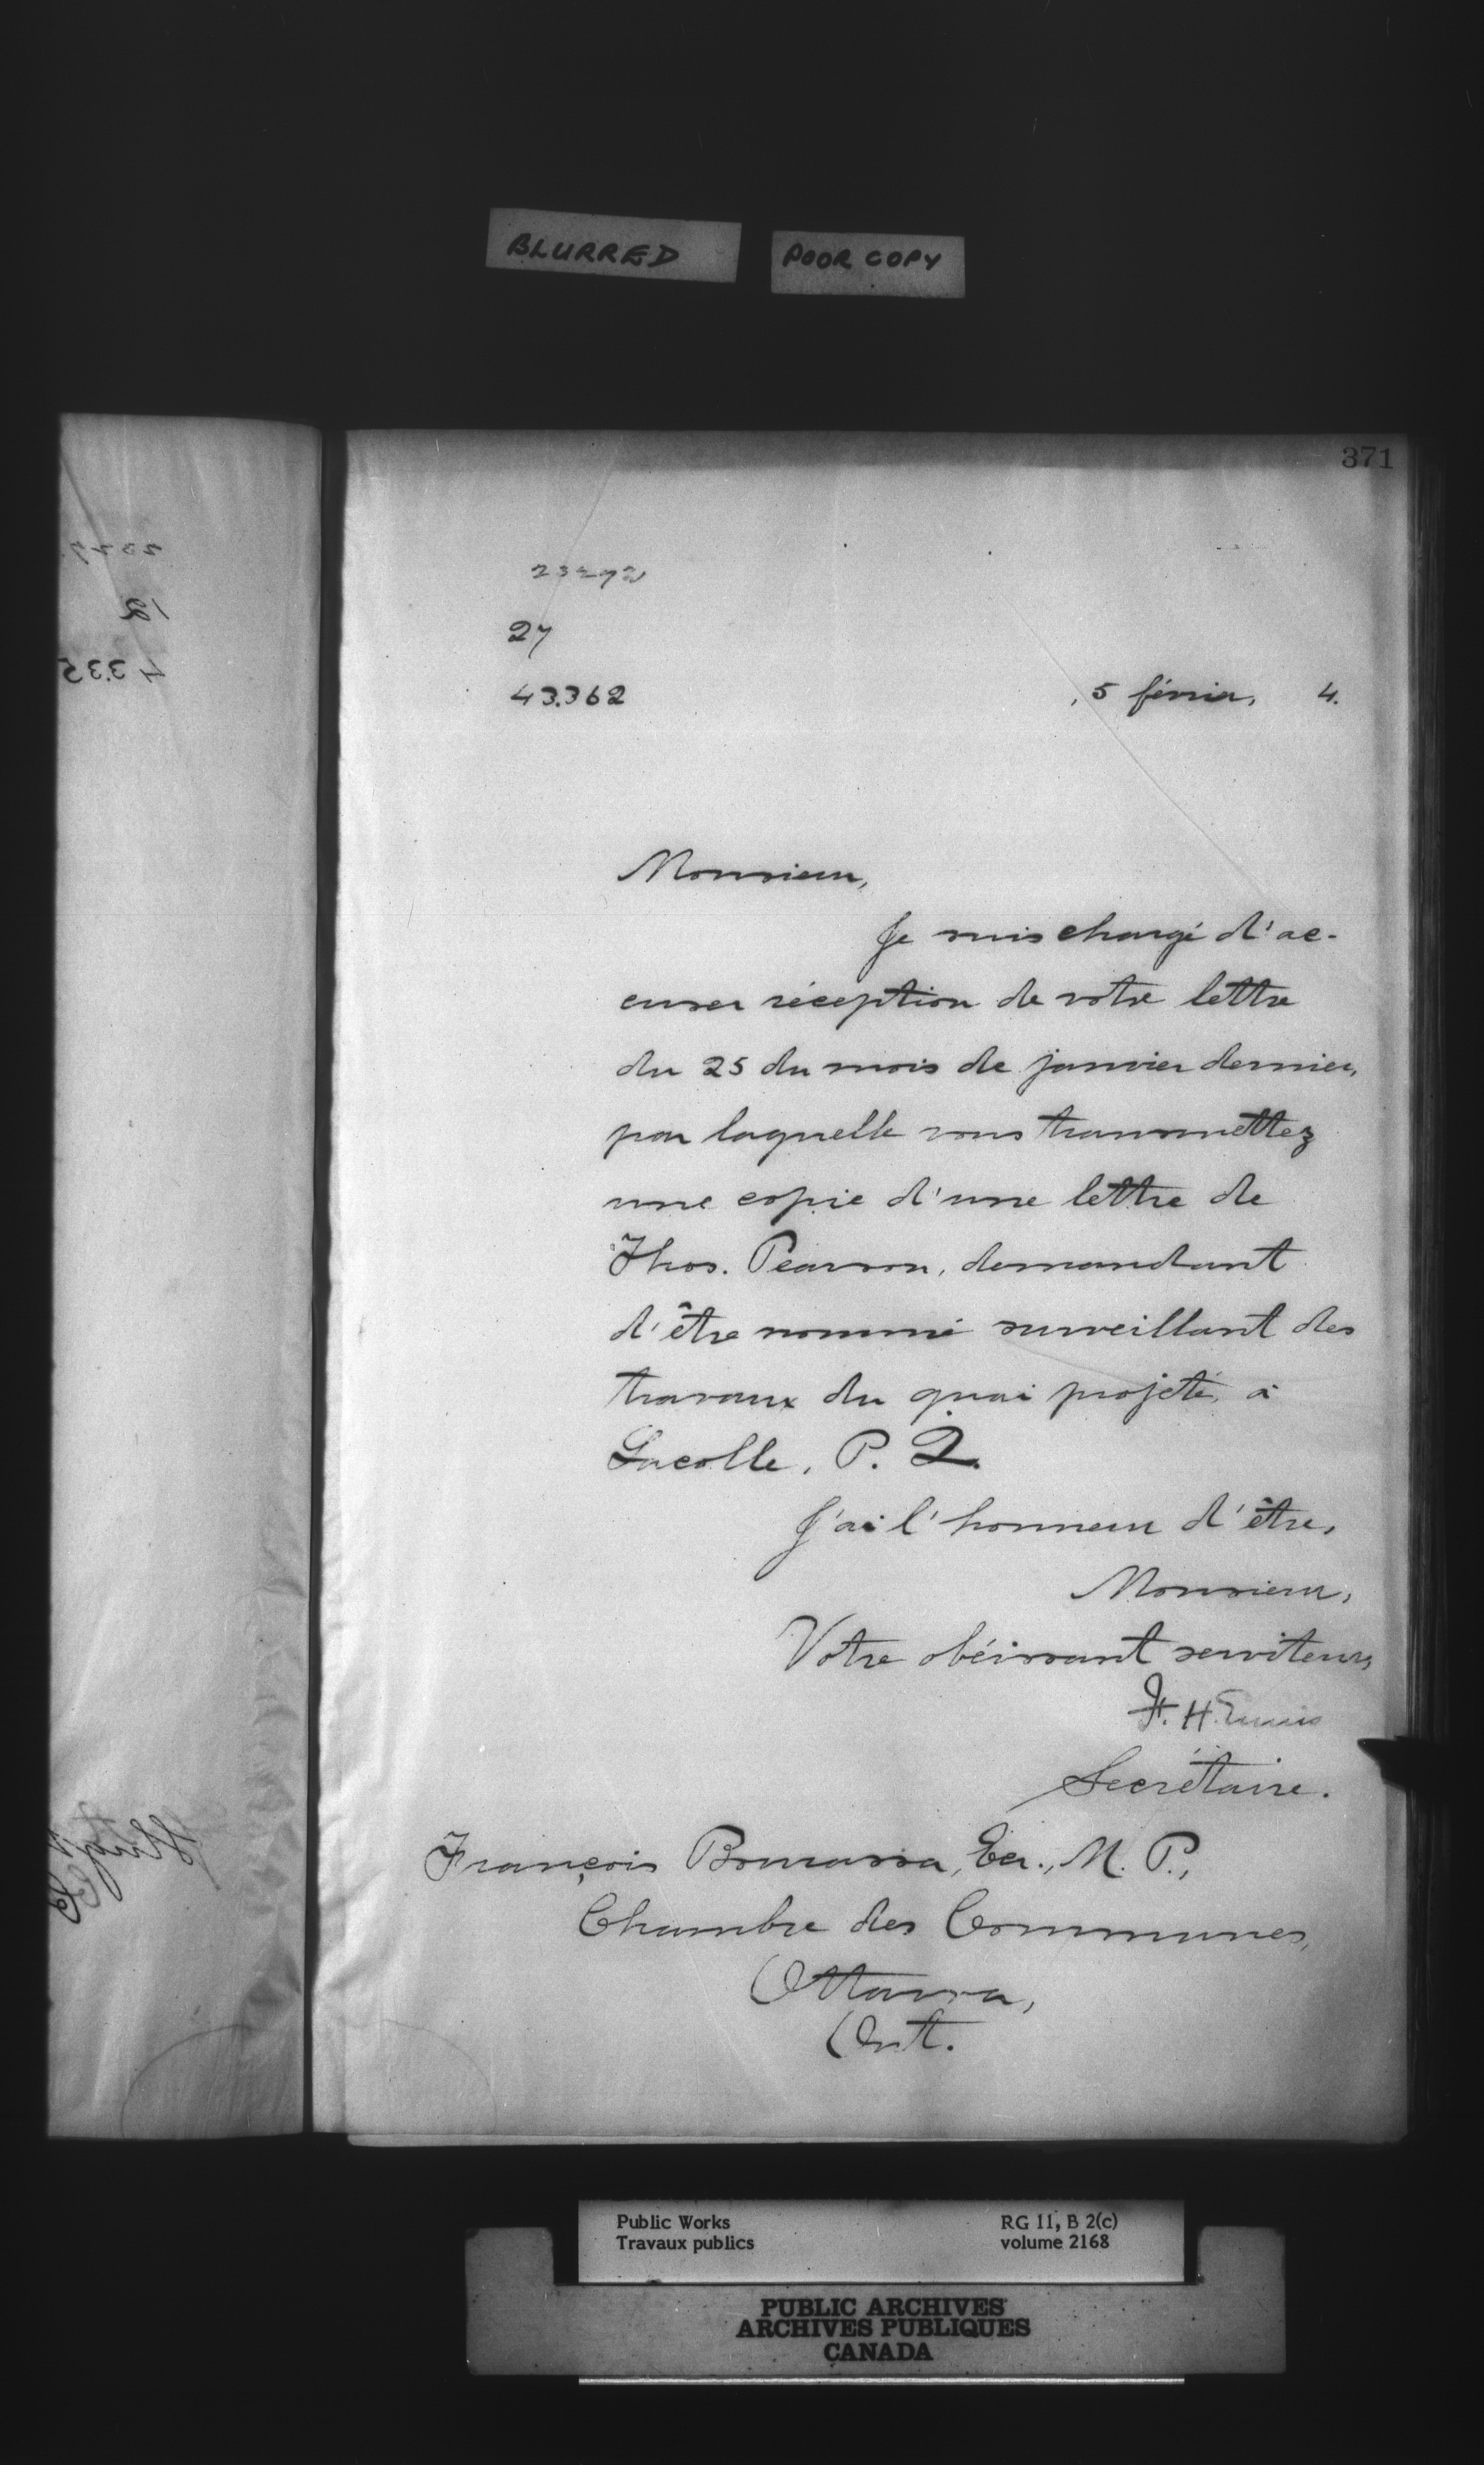 BLURRED
POOR COPY
371
27
43.362
5 février, 4.
Monsieur,
Je suis chargé d'ac-
cuser réception de votre lettre
du 25 du mois de janvier dernier,
par laquelle vous transmettez
une copie d'une lettre de
Thos. Pearson, demandant
d'être nommé surveillant des
travaux du quai projeté, à
Lacolle, P. Q.
J'ai l'honneur d'être,
Monsieur,
Votre obéissant serviteur,
F. H. Ennis
Secrétaire.
François Bourassa, Ecr., M. P.,
Chambre des Communes,
Ottawa,
Ont.
Public Works
Travaux publics
RG 11, B 2(c)
volume 2168
PUBLIC ARCHIVES
ARCHIVES PUBLIQUES
CANADA